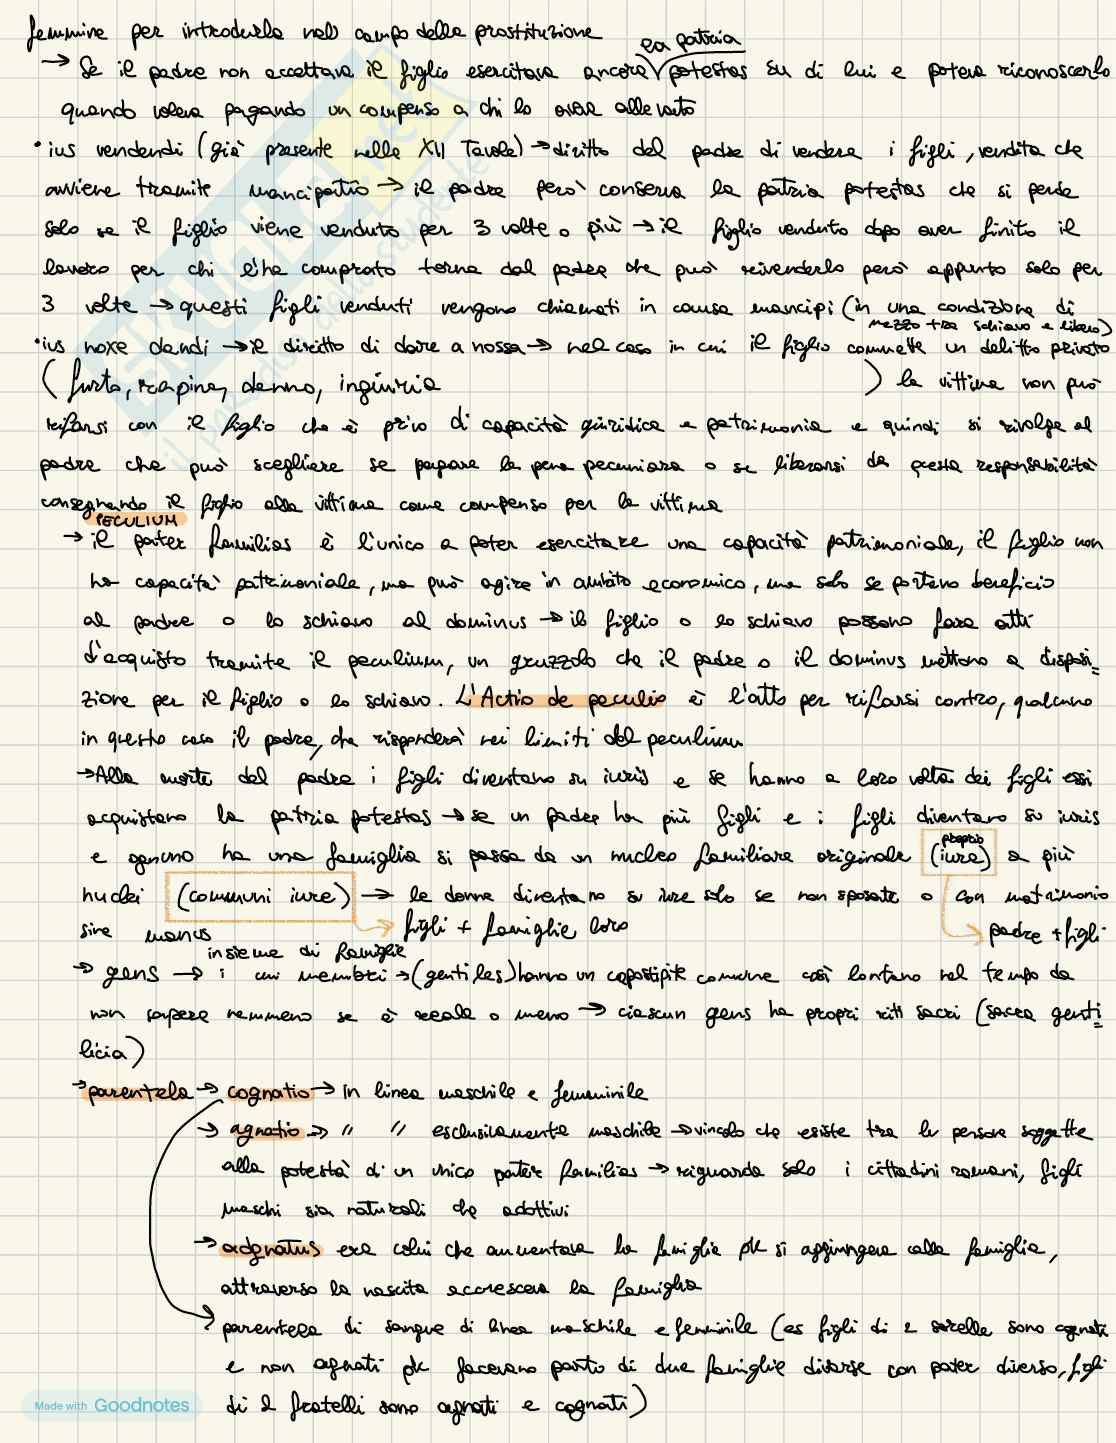 femmine per introdurle nel campo della prostituzione
→ Se il padre non accettava il figlio esercitava ancora la patria potestas su di lui e poteva riconoscerlo
quando voleva pagando un compenso a chi lo aveva allevato
• ius vendendi (già presente nelle XII Tavole) → diritto del padre di vendere i figli, vendita che
avviene tramite mancipatio → il padre però conserva la patria potestas che si perde
solo se il figlio viene venduto per 3 volte o più → il figlio venduto dopo aver finito il
lavoro per chi l'ha comprato torna dal padre che può rivenderlo però appunto solo per
3 volte → questi figli venduti vengono chiamati in causa mancipi (in una condizione di
mezzo tra schiavo e libero)
• ius noxe dandi → il diritto di dare a nossa → nel caso in cui il figlio commette un delitto privato
(furto, rapina, danno, ingiuria ) la vittima non può
rifarsi con il figlio che è privo di capacità giuridica e patrimonia e quindi si rivolge al
padre che può scegliere se pagare la pena pecuniara o se liberarsi da questa responsabilità
consegnando il figlio alla vittima come compenso per la vittima
PECULIUM
→ il pater familias è l'unico a poter esercitare una capacità patrimoniale, il figlio non
ha capacità patrimoniale, ma può agire in ambito economico, ma solo se portano beneficio
al padre o lo schiavo al dominus → il figlio o lo schiavo possono fare atti
d'acquisto tramite il peculium, un gruzzolo che il padre o il dominus mettono a disposi=
zione per il figlio o lo schiavo. L'Actio de peculio è l'atto per rifarsi contro, qualcuno
in questo caso il padre, che risponderà nei limiti del peculium
→ Alla morte del padre i figli diventano su iuris e se hanno a loro volta dei figli essi
acquistano la patria potestas → se un padre ha più figli e i figli diventano su iuris
e ognuno ha una famiglia si passa da un nucleo familiare originale (proprio iure) a più
nuclei (communi iure) → le donne diventano su iure solo se non sposate o con matrimonio
sine manus figli + famiglie loro padre + figli
→ gens → insieme di famiglie i cui membri → (gentiles) hanno un capostipite comune così lontano nel tempo da
non sapere nemmeno se è reale o meno → ciascun gens ha propri riti sacri (sacra genti=
licia)
→ parentela → cognatio → in linea maschile e femminile
→ agnatio → " " esclusivamente maschile → vincolo che esiste tra le persone soggette
alla potestà di un unico pater familias → riguarda solo i cittadini romani, figli
maschi sia naturali che adottivi
→ adgnatus era colui che aumentava la famiglia pk si aggiungeva alla famiglia,
attraverso la nascita accresceva la famiglia
parentela di sangue di linea maschile e femminile (es figli di 2 sorelle sono cognati
e non agnati pk facevano parte di due famiglie diverse con pater diverso, figli
di 2 fratelli sono agnati e cognati)
Made with Goodnotes